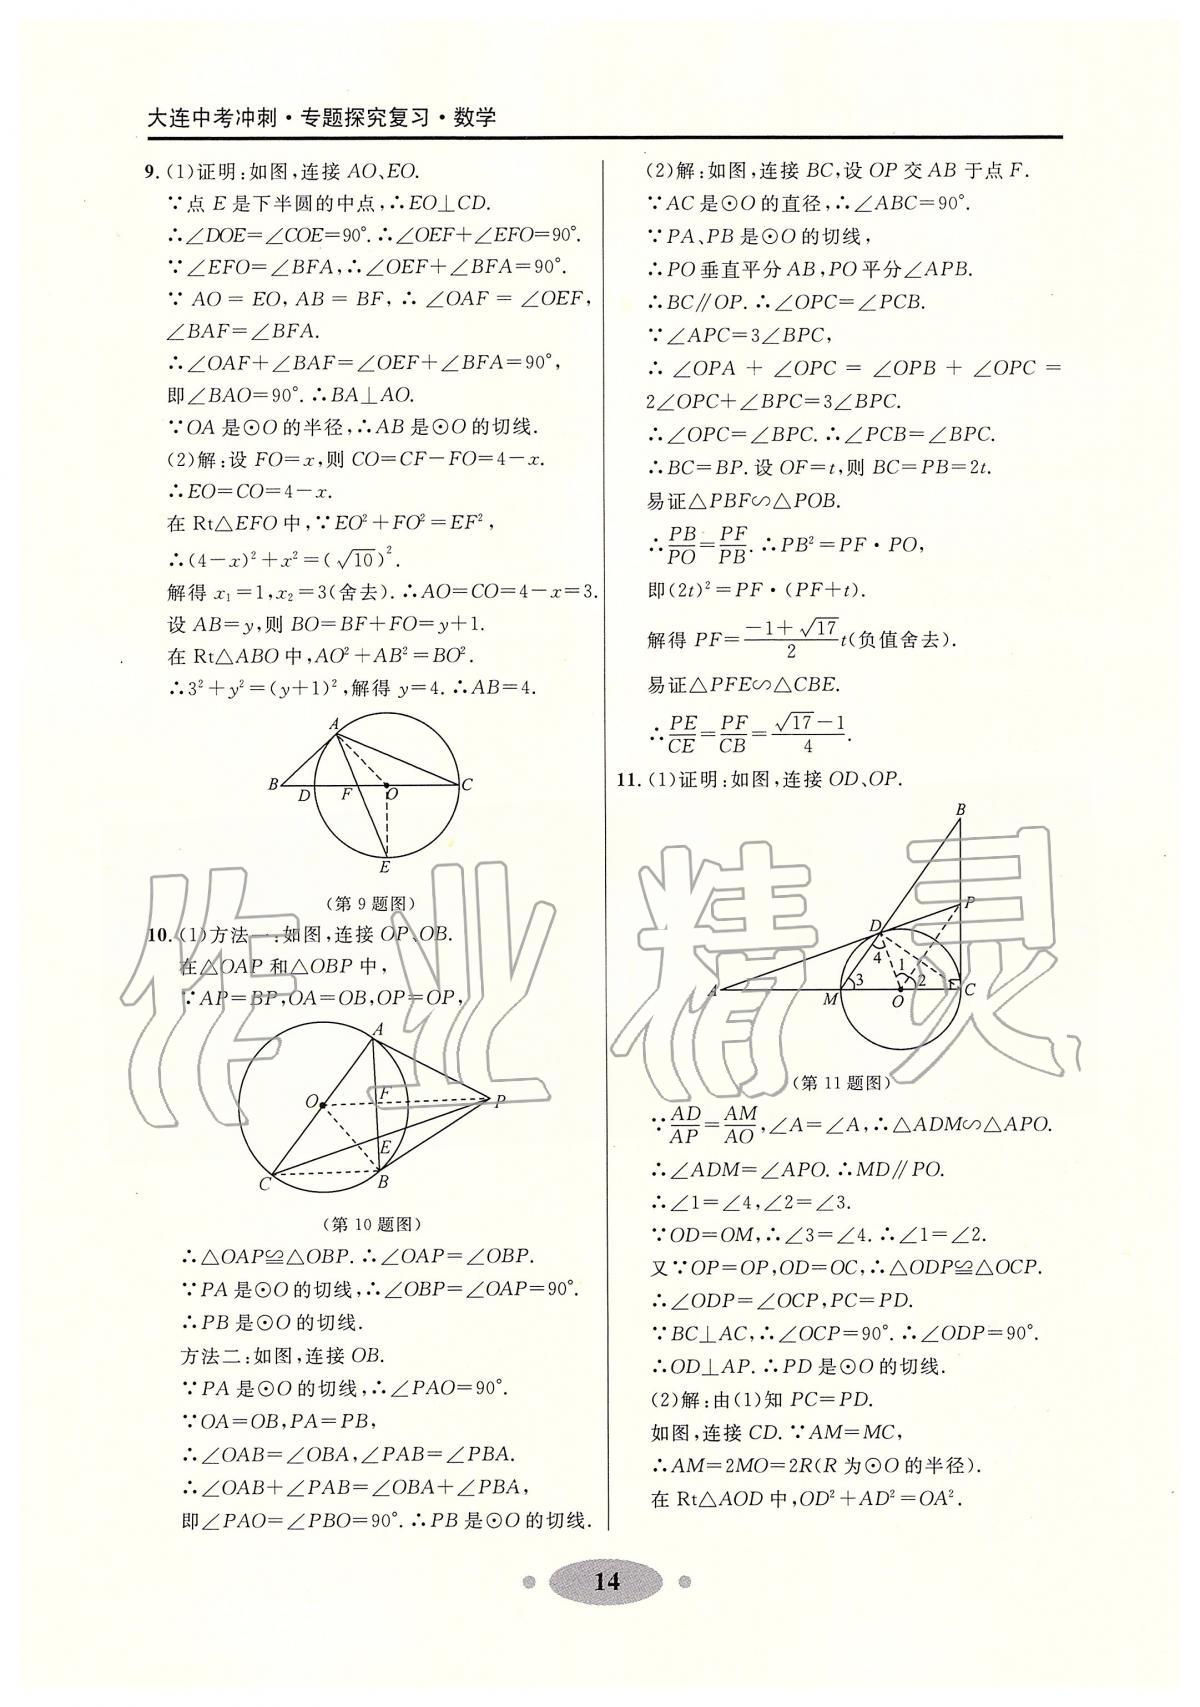 大连中考冲刺·专题探究复习·数学
9. (1)证明:如图,连接 AO、EO.
∵点 E 是下半圆的中点,∴EO⊥CD.
∴∠DOE=∠COE=90°.∴∠OEF+∠EFO=90°.
∵∠EFO=∠BFA,∴∠OEF+∠BFA=90°.
∵ AO = EO, AB = BF, ∴ ∠OAF = ∠OEF,
∠BAF=∠BFA.
∴∠OAF+∠BAF=∠OEF+∠BFA=90°,
即∠BAO=90°.∴BA⊥AO.
∵OA 是⊙O 的半径,∴AB 是⊙O 的切线.
(2)解:设 FO=x,则 CO=CF-FO=4-x.
∴EO=CO=4-x.
在 Rt△EFO 中,∵EO²+FO²=EF²,
∴(4-x)²+x²=(√10)².
解得 x₁=1,x₂=3(舍去).∴AO=CO=4-x=3.
设 AB=y,则 BO=BF+FO=y+1.
在 Rt△ABO 中,AO²+AB²=BO².
∴3²+y²=(y+1)²,解得 y=4.∴AB=4.
A
B D F O C
E
(第 9 题图)
10. (1)方法一:如图,连接 OP、OB.
在△OAP 和△OBP 中,
∵AP=BP,OA=OB,OP=OP,
A
O F P
E
C B
(第 10 题图)
∴△OAP≌△OBP.∴∠OAP=∠OBP.
∵PA 是⊙O 的切线,∴∠OBP=∠OAP=90°.
∴PB 是⊙O 的切线.
方法二:如图,连接 OB.
∵PA 是⊙O 的切线,∴∠PAO=90°.
∵OA=OB,PA=PB,
∴∠OAB=∠OBA,∠PAB=∠PBA.
∴∠OAB+∠PAB=∠OBA+∠PBA,
即∠PAO=∠PBO=90°.∴PB 是⊙O 的切线.
(2)解:如图,连接 BC,设 OP 交 AB 于点 F.
∵AC 是⊙O 的直径,∴∠ABC=90°.
∵PA、PB 是⊙O 的切线,
∴PO 垂直平分 AB,PO 平分∠APB.
∴BC∥OP.∴∠OPC=∠PCB.
∵∠APC=3∠BPC,
∴ ∠OPA + ∠OPC = ∠OPB + ∠OPC =
2∠OPC+∠BPC=3∠BPC.
∴∠OPC=∠BPC.∴∠PCB=∠BPC.
∴BC=BP.设 OF=t,则 BC=PB=2t.
易证△PBF∽△POB.
∴PB/PO=PF/PB.∴PB²=PF·PO,
即(2t)²=PF·(PF+t).
解得 PF=(-1+√17)/2 t(负值舍去).
易证△PFE∽△CBE.
∴PE/CE=PF/CB=(√17-1)/4.
11. (1)证明:如图,连接 OD、OP.
B
D P
4 1
A M 3 O 2 C
(第 11 题图)
∵AD/AP=AM/AO,∠A=∠A,∴△ADM∽△APO.
∴∠ADM=∠APO.∴MD∥PO.
∴∠1=∠4,∠2=∠3.
∵OD=OM,∴∠3=∠4.∴∠1=∠2.
又∵OP=OP,OD=OC,∴△ODP≌△OCP.
∴∠ODP=∠OCP,PC=PD.
∵BC⊥AC,∴∠OCP=90°.∴∠ODP=90°.
∴OD⊥AP.∴PD 是⊙O 的切线.
(2)解:由(1)知 PC=PD.
如图,连接 CD.∵AM=MC,
∴AM=2MO=2R(R 为⊙O 的半径).
在 Rt△AOD 中,OD²+AD²=OA².
14
作业精灵